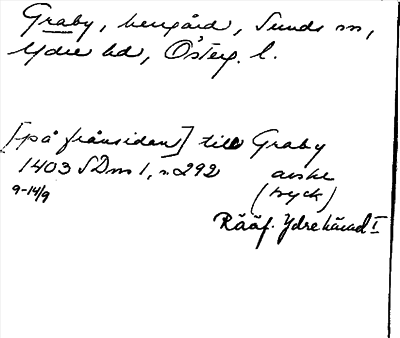 Graby, herrgård, Sunds sn,
Ydre hd, Österg. l.
[på frånsidan] till Graby
1403 SDns 1, s. 292 avskr
9-14/9 (tryck)
Rääf. Ydre härad I